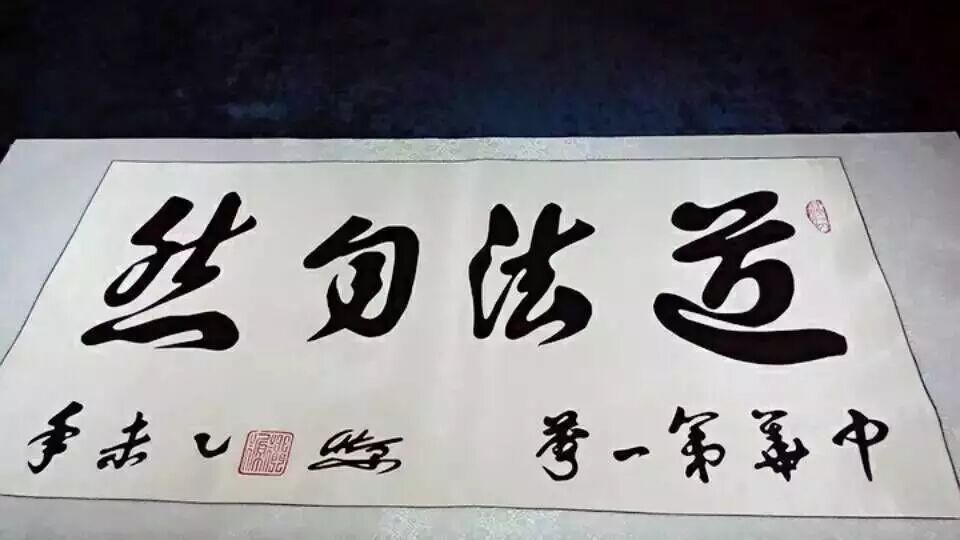 道法自然
中華第一 乙未年